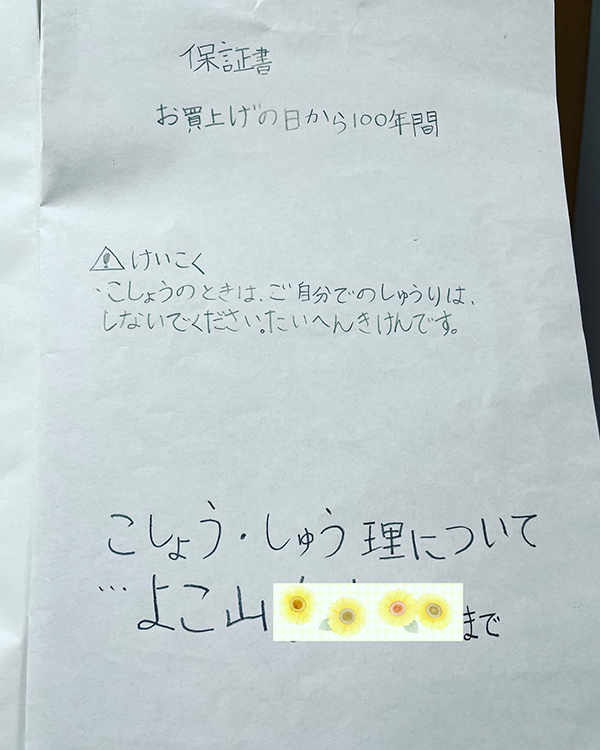 保証書
お買上げの日から100年間
けいこく
・こしょうのときは、ご自分でのしゅうりは、
しないでください。たいへんきけんです。
こしょう・しゅう理について
…よこ山
まで